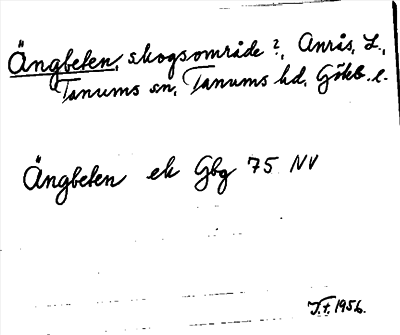 Ängbeten, skogsområde?, Anrås, L.,
Tanums sn, Tanums hd, Gökb. l.
Ängbeten ek Gbg 75 NV
J.t. 1956.